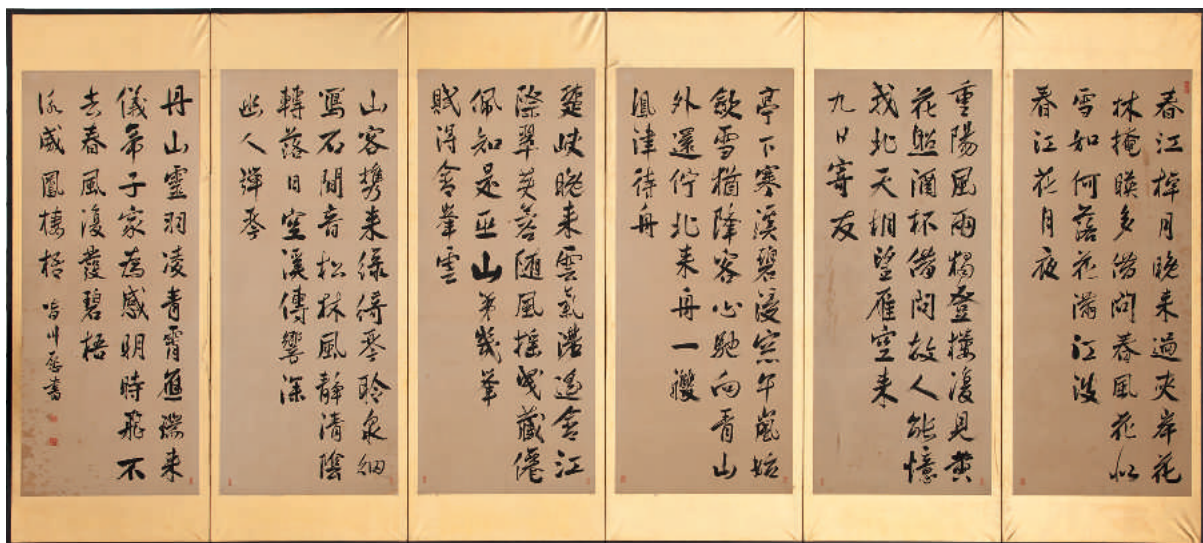 春江棹月晚来過夾岸花
林掩暎多借問春風花似
雪如何落花滿江波
春江花月夜
重陽風雨獨登樓復見黄
花照酒杯借問故人能憶
我北天相望雁空来
九日寄友
亭下寒溪碧浸窓午嵐始
歛雪猶降客心馳向青山
外還佇北来舟一雙
鳳津待舟
楚峡晚来雲氣濃遥含江
際翠芙蓉随風摇曳藏僊
佩知是巫山第幾峯
賦得含峯雲
山客携来緑綺琴聆泉細
寫石間音松林風静清陰
轉落日空溪傳響深
幽人弾琴
丹山靈羽凌青霄應瑞来
儀帝子家為感明時飛不
去春風復發碧梧
詠威鳳棲梧 皆川愿書